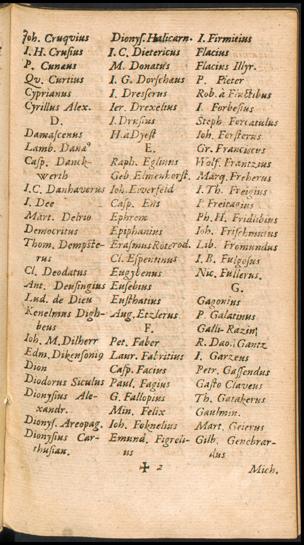 Joh. Cruqvius
I. H. Crusius
P. Cunæus
Qv. Curtius
Cyprianus
Cyrillus Alex.
D.
Damascenus
Lamb. Danæ9
Casp. Danck-
werth
I.C. Danhaverus
I. Dee
Mart. Delrio
Democritus
Thom. Dempste-
rus
Cl. Deodatus
Ant. Deusingius
Lud. de Dieu
Kenelmus Digh-
beus
Joh. M. Dilherr
Edm. Dikenson9
Dion
Diodorus Siculus
Dionysius Ale-
xandr.
Dionys. Areopag.
Dionysius Car-
thusian.
Dionys. Halicarn.
I. C. Dietericus
M. Donatus
I. G. Dorschæus
I. Dresserus
Ier. Drexelius
I. Drusius
H. à Dyest
E.
Raph. Eglinus
Geb. Elmenhorst.
Joh. Elverfeld
Casp. Ens
Ephrem
Epiphanius
Erasmus Roterod.
Cl. Espentinus
Eugubenus
Eusebius
Eusthatius
Aug. Etzlerus
F.
Pet. Faber
Laur. Fabritius
Casp. Facius
Paul. Fagius
G. Fallopius
Min. Felix
Joh. Foknelius
Emund. Figreli-
us
I. Firmitius
Flacius
Flacius Illyr.
P. Pieter
Rob. à Fluctibus
I. Forbesius
Steph. Forcatulus
Joh. Forsterus
Gr. Franciscus
Wolf. Frantzius
Marq. Freherus
I. Th. Freigius
I. Freitagius
Ph. H. Fridlibius
Joh. Frischmutus
Lib. Fromundus
I. B. Fulgosus
Nic. Fullerus.
G.
Gagonius
P. Galatinus
Galli-Razin
R. Dao. Gantz
I. Garzeus
Petr. Gassendus
Gasto Claveus
Th. Gatakerus
Gaulmin.
Mart. Geierus
Gilb. Genebrar-
dus
✠ 2
Mich.